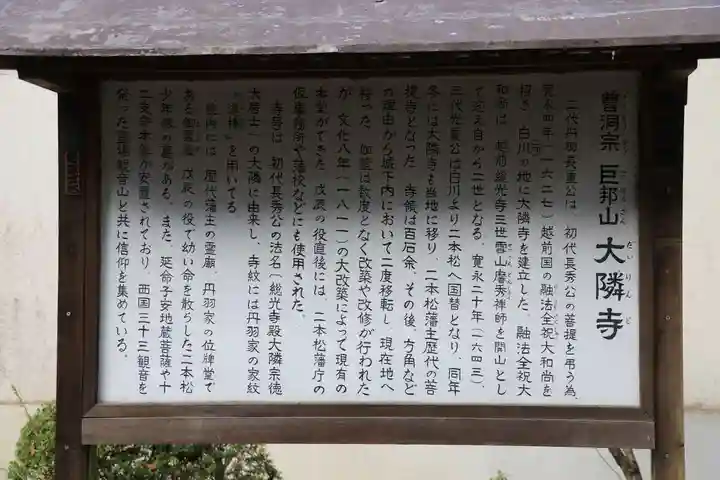 曹洞宗 巨邦山 大隣寺
二代丹羽長重公は、初代長秀公の菩提を弔う為、
寛永四年(一六二七)越前国の融法全祝大和尚を
招き、白川の地に大隣寺を建立した。融法全祝大
和尚は、越前総光寺三世雪山 秀禅師を開山とし
て迎え自から二世となる。寛永二十年(一六四三)、
三代光重公は白川より二本松へ国替となり、同年
冬には大隣寺も当地に移り、二本松藩主歴代の菩
提寺となった。寺領は百石余、その後、方角など
の理由から城下内において二度移転し、現在地へ
移った。伽藍は数度となく改築や改修が行われた
が、文化八年(一八一一)の大改築によって現有の
本堂ができた。戊辰の役直後には、二本松藩庁の
仮事務所や藩校などにも使用された。
寺号は、初代長秀公の法名(総光寺殿大隣宗徳
大居士)の大隣に由来し、寺紋には丹羽家の家紋
「直棒」を用いてる。
境内には、歴代藩主の霊廟、丹羽家の位牌堂で
ある御霊屋、戊辰の役で幼い命を散らした二本松
少年隊の墓がある。また、延命子安地蔵菩薩や十
二支守本尊が安置されており、西国三十三観音を
祭った霊場観音山と共に信仰を集めている。